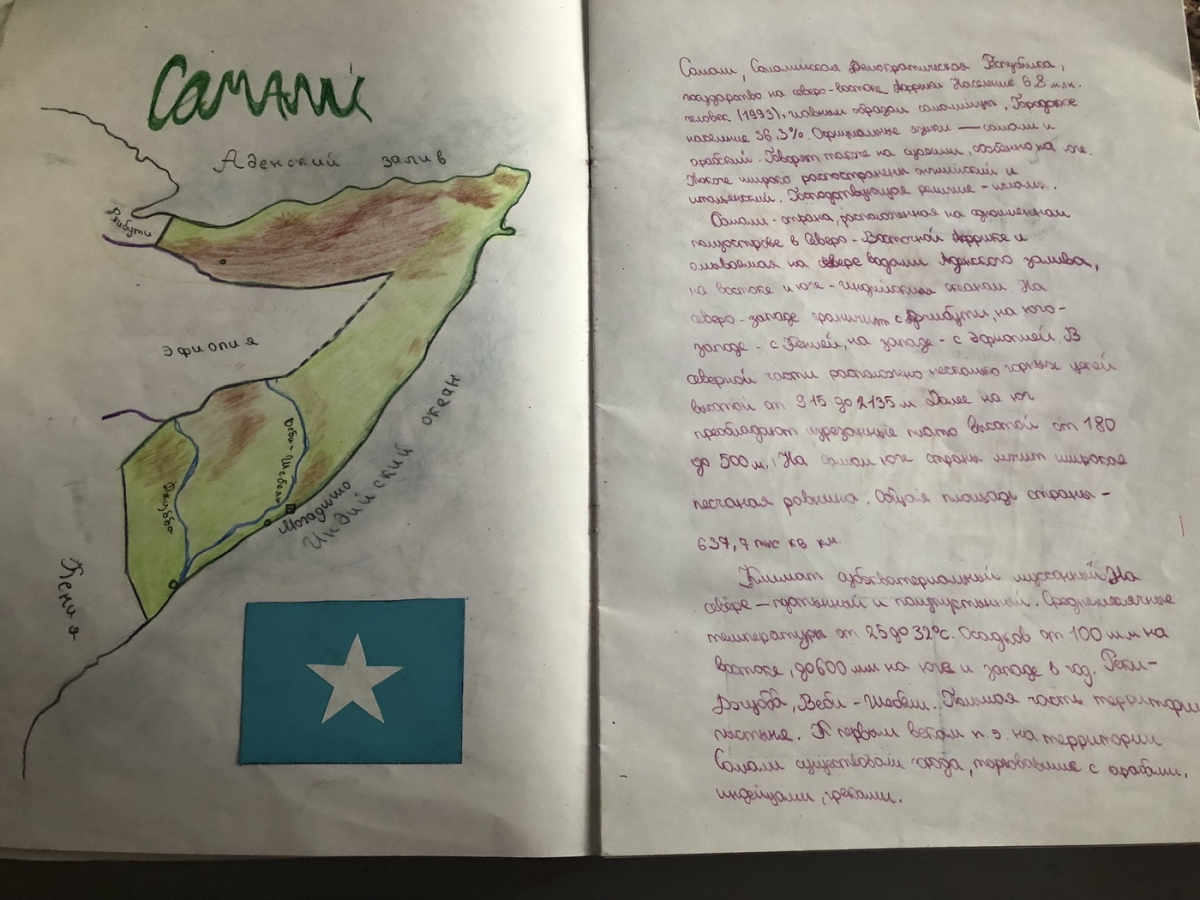 Сомали
Аденский залив
Джибути
Эфиопия
Веби-Шебели
Джубба
Могадишо
Индийский океан
Кения
Сомали, Сомалийская Демократическая Республика,
государство на северо-востоке Африки. Население 6,8 млн.
человек (1993), главным образом сомалийцы. Городское
население 36,3%. Официальные языки — сомали и
арабский. Говорят также на суахили, особенно на юге.
Также широко распостранены английский и
итальянский. Господствующая религия - ислам.
Сомали - страна, расположенная на одноименном
полуострове в Северо-Восточной Африке и
омываемая на севере водами Аденского залива,
на востоке и юге - Индийским океаном. На
северо-западе граничит с Джибути, на юго-
западе - с Кенией, на западе - с Эфиопией. В
северной части расположено несколько горных цепей
высотой от 915 до 2135 м. Далее на юг
преобладают изрезанные плато высотой от 180
до 500 м. На самом юге страны лежит широкая
песчаная равнина. Общая площадь страны -
637,7 тыс кв км.
Климат субэкваториальный муссонный. На
севере — пустынный и полупустынный. Среднемесячные
температуры от 25 до 32°С. Осадков от 100 мм на
востоке, до 600 мм на юге и западе в год. Реки -
Джубба, Веби-Шебели. Большая часть территории
пустыня. К первым векам н.э. на территории
Сомали существовали города, торговавшие с арабами,
индейцами, греками.